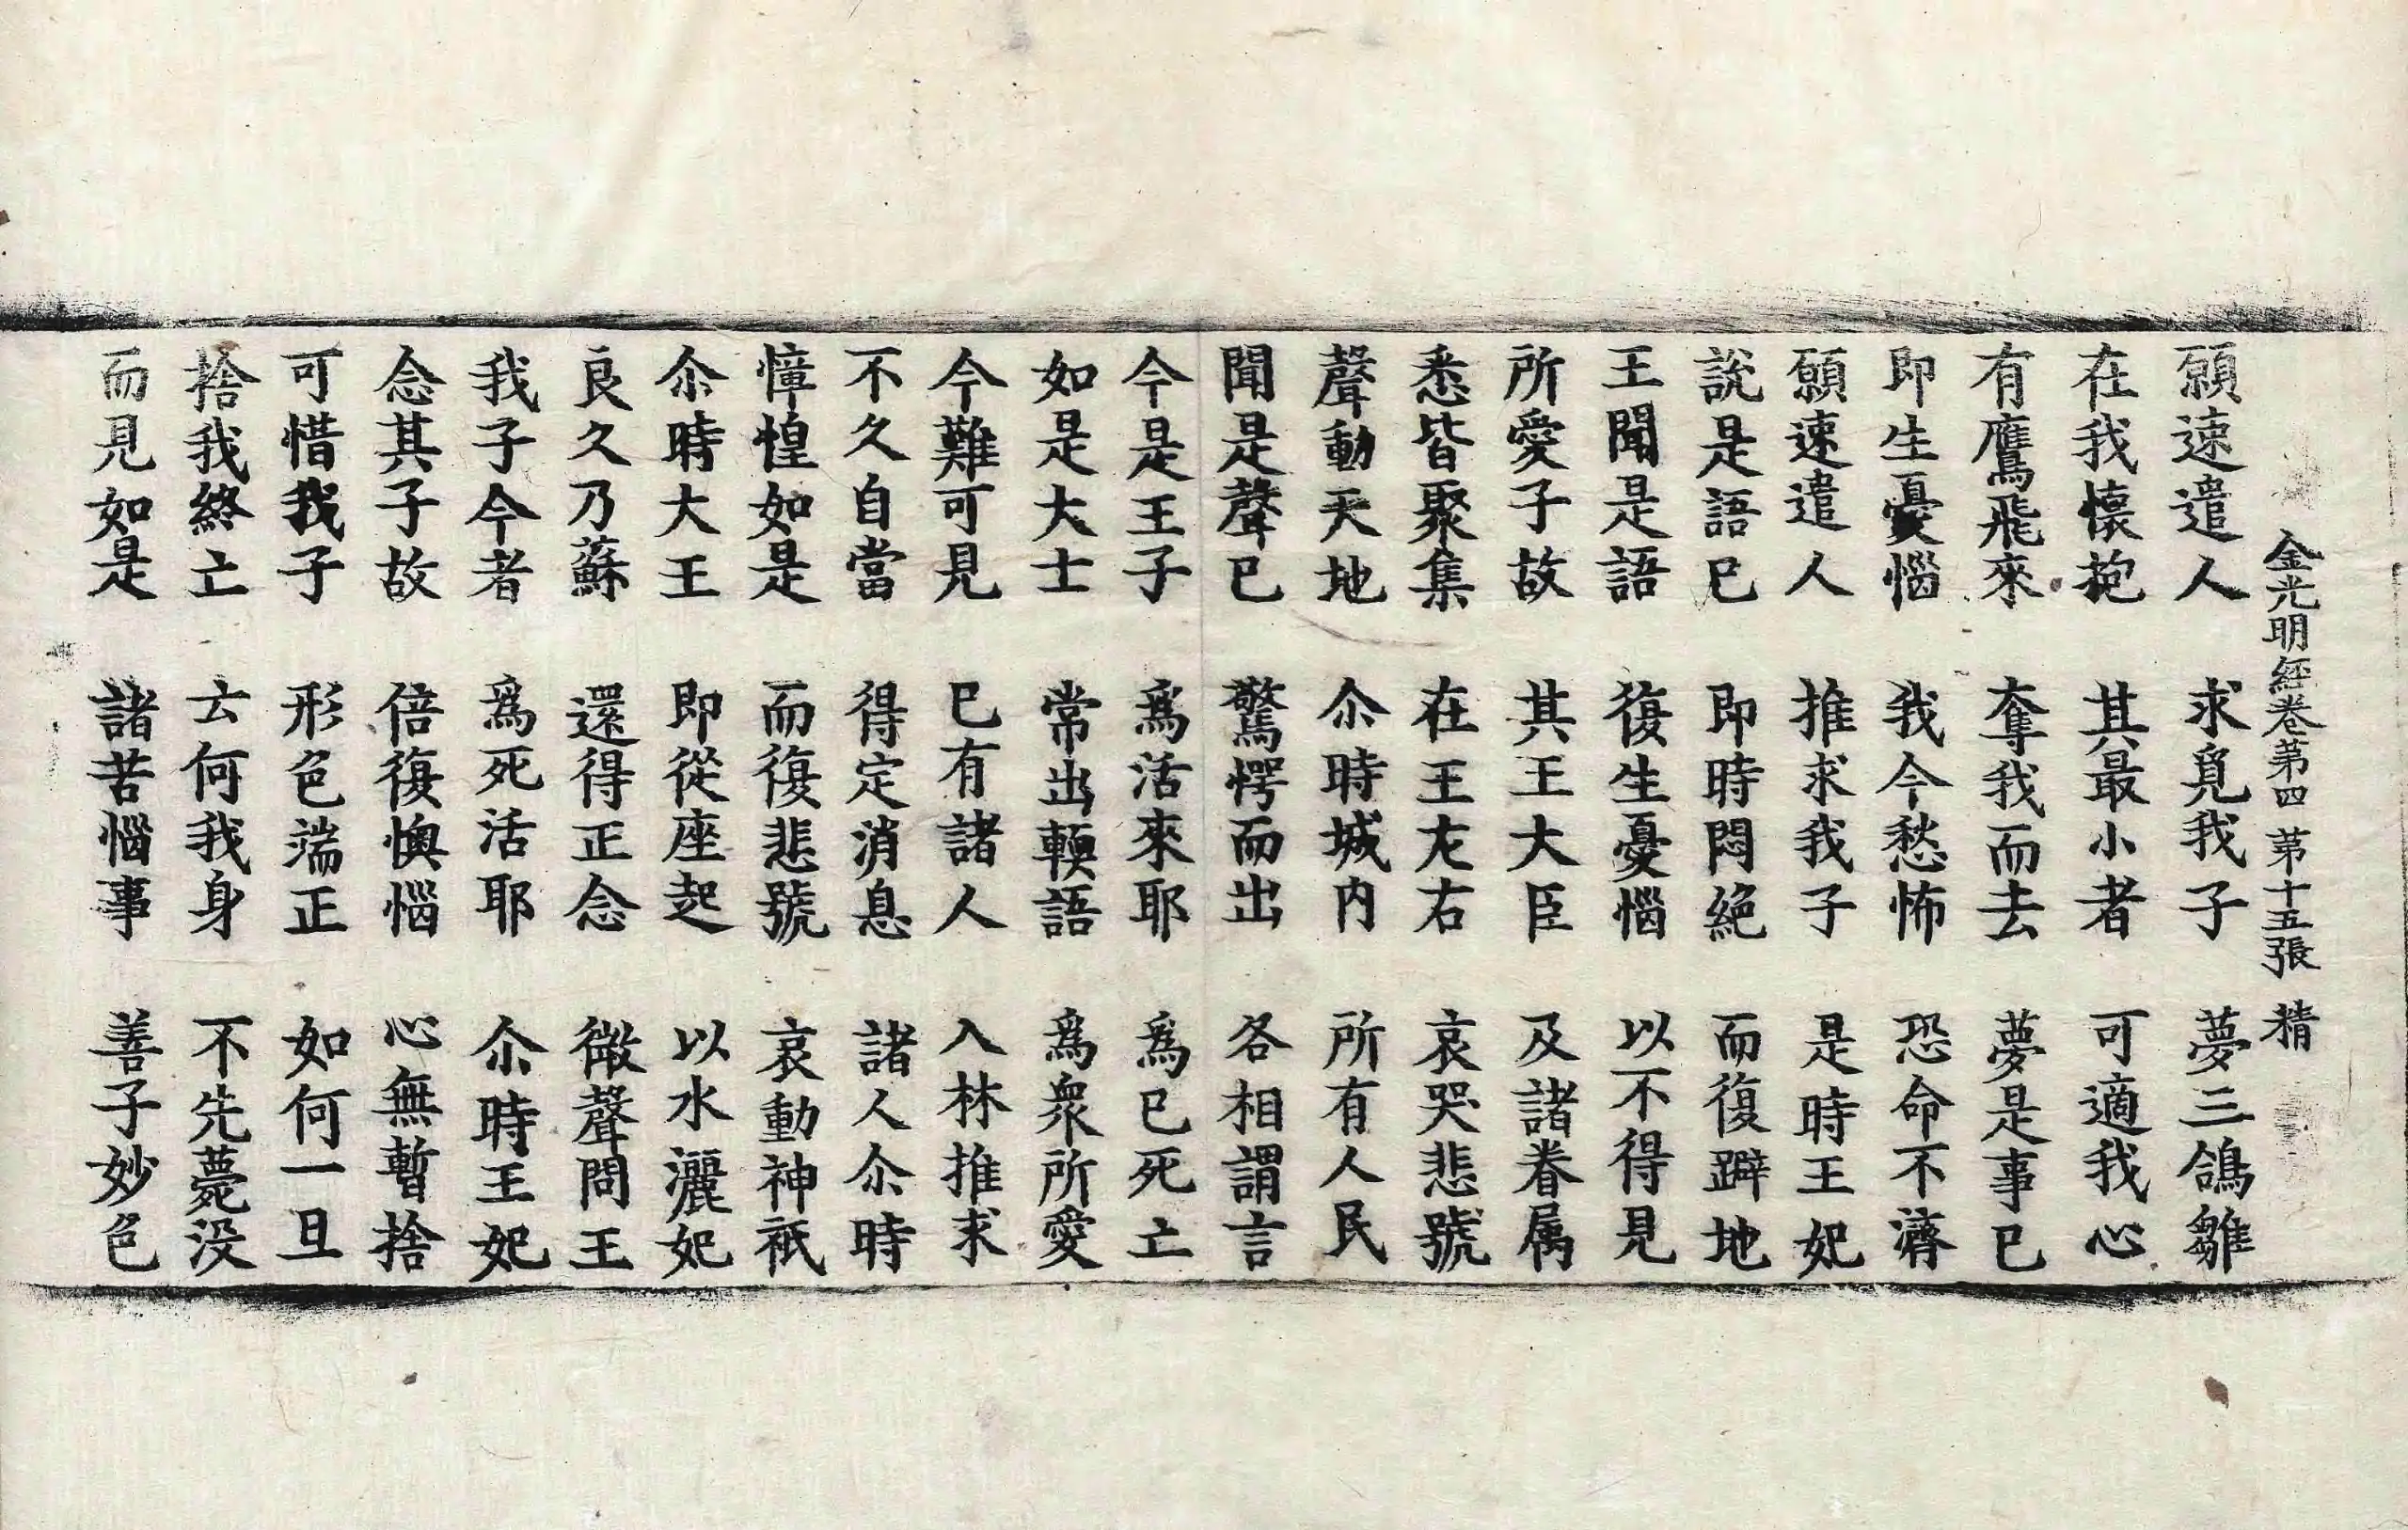 金光明經卷第四 第十五張 精
願速遣人 求覓我子 夢三鴿雛
在我懷抱 其最小者 可適我心
有鷹飛來 奪我而去 夢是事已
即生憂惱 我今愁怖 恐命不濟
願速遣人 推求我子 是時王妃
說是語已 即時悶絕 而復躃地
王聞是語 復生憂惱 以不得見
所愛子故 其王大臣 及諸眷属
悉皆聚集 在王左右 哀哭悲號
聲動天地 尒時城内 所有人民
聞是聲已 驚愕而出 各相謂言
今是王子 爲活來耶 爲已死亡
如是大士 常出輭語 爲衆所愛
今難可見 已有諸人 入林推求
不久自當 得定消息 諸人尒時
慞惶如是 而復悲號 哀動神祇
尒時大王 即從座起 以水灑妃
良久乃蘇 還得正念 微聲問王
我子今者 爲死活耶 尒時王妃
念其子故 倍復懊惱 心無暫捨
可惜我子 形色端正 如何一旦
捨我終亡 云何我身 不先薨没
而見如是 諸苦惱事 善子妙色